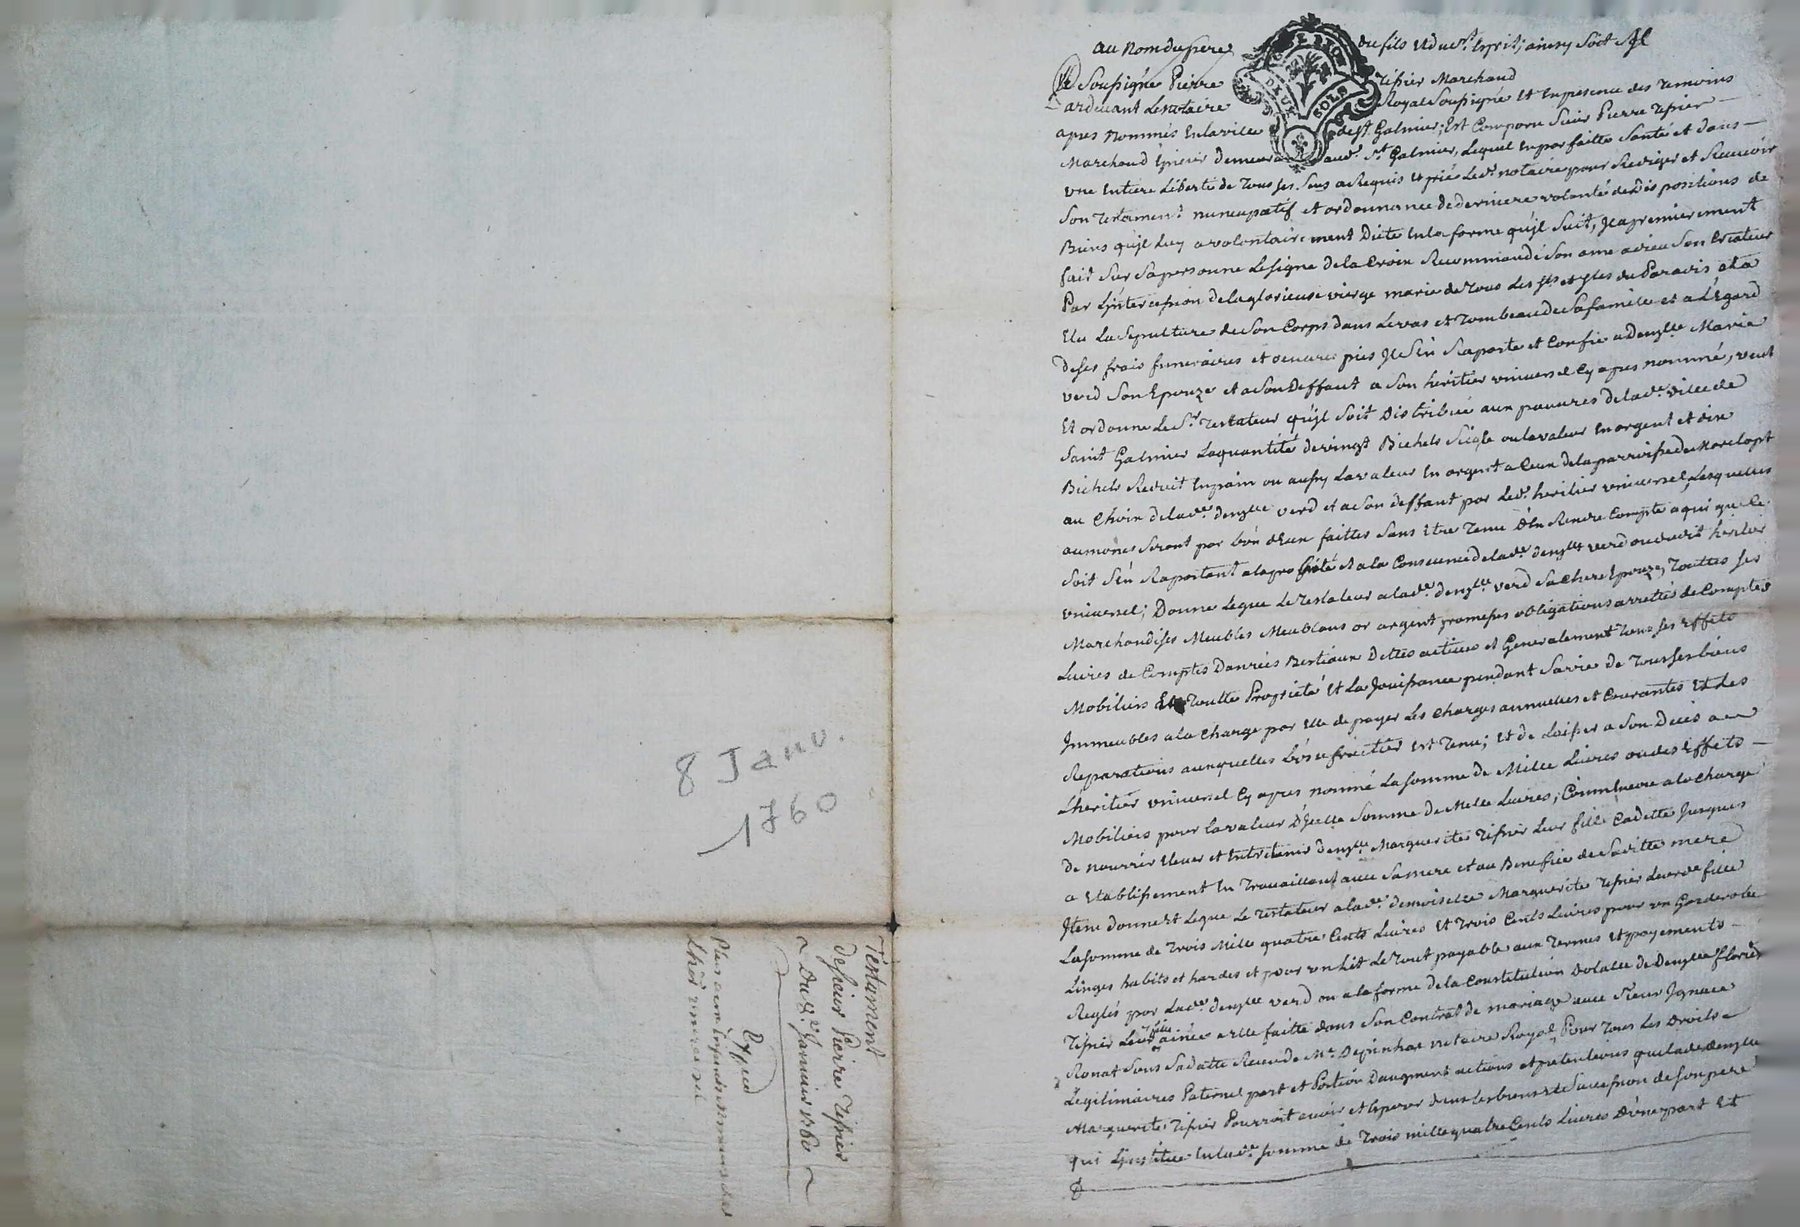 8 Janv.
1760
Testament
de sieur Pierre Tissier
Du 8e. Janvier 1760
Expedié
au nom du pere du fils et du st. Esprit; ainsy soit il
Soussigné Pierre Tissier Marchand
Pardevant Le notaire Royal Soussigné Et En presence des Temoins
apres Nommés En la ville de st. Galmier; Est Comparu Sieur Pierre Tissier
Marchand Epicier Demeurant aud. St. Galmier, Lequel En parfaitte Santé et dans
une Entiere Liberté de Tous ses Sens a Requis et prié Led. notaire pour Rediger et Recevoir
Son Testament nuncupatif et ordonnance de derniere volonté de Dispositions de
Biens qu'jl Luy a volontairement Dicté En la forme qu'jl Suit, Jl a premierement
fait Sur Sa personne Le signe de la Croix Recommandé Son ame a dieu Son Createur
Par L'jntercession de la glorieuse vierge marie de Tous Les sts et stes du Paradis, a
Elu La Sepulture de Son Corps dans Le vas et Tombeau de Sa famille et a L'Egard
De ses frais funeraires et oeuvres pies Jl S'en Raporte et Confie a Demlle Marie
verd Son Epouze et a Son Deffaut a Son heritier universel Cy apres nommé, veut
Et ordonne Le Sr. Testateur qu'jl Soit Distribué aux pauvres de lad. ville de
Saint Galmier La quantité de vingt Bichets Seigle ou la valeur En argent et dix
Bichets Reduit En grain ou aussy La valeur En argent a Ceux de la parroisse de
au Choix de lad. demlle verd et a Son deffaut par Led. heritier universel, Lesquelles
aumones Seront par L'un d'Eux faittes Sans Etre Tenu d'En Rendre Compte a qui que Ce
Soit S'en Raportant a la et a la Conscience de lad. demlle verd ou dudit heritier
universel; Donne Legue Le Testateur a lad. demlle verd Sa Chere Epouze, Touttes Ses
Marchandises Meubles Meublans or argent promesses obligations arrettés de Comptes
Livres de Comptes Danrées Bestiaux Dettes actives et Generalement Tous ses Effets
Mobiliers En Toutte Proprieté Et La Jouissance pendant Sa vie de Tous ses biens
Jmmeubles a la Charge par Elle de payer Les Charges annuelles et Courantes Et Les
Reparations auxquelles L'usufruitier Est Tenu; Et de Laisser a Son Deces a
L'heritier universel Cy apres nommé La Somme de Mille Livres ou des Effets
Mobiliers pour La valeur D'jcelle Somme de Mille Livres; Comm'aussy a la charge
de nourrir Elever et Entretenir demlle Marguerite Tissier Leur fille Cadette Jusques
a Etablissement En Travaillant avec Sa mere et au Benefice de Saditte mere
Jtem donne Et Legue Le Testateur a lad. demoiselle Marguerite Tissier Leurd. fille
La Somme de Trois Mille quatre Cents Livres Et Trois Cents Livres pour un Garderobe
Linges habits et hardes et pour un Lit Le Tout payable aux Termes Et payements
Reglés par Lad. demlle verd ou a la forme de la Constitution Dotalle de Demlle
Tissier Leur fille ainée a Elle faitte dans Son Contrat de mariage avec Sieur Jgnace
Ronat Sous Sa datte Receu de Me. notaire Royal, Pour Tous Les Droits
Legitimaires Paternel part et Portion D'augment actions et pretentions que lad. demlle
Marguerite Tissier Pourroit avoir et Esperer dans Les biens et Succession de Son pere
qui L'jnstitue En lad. Somme de Trois mille quatre Cents Livres D'une part Et